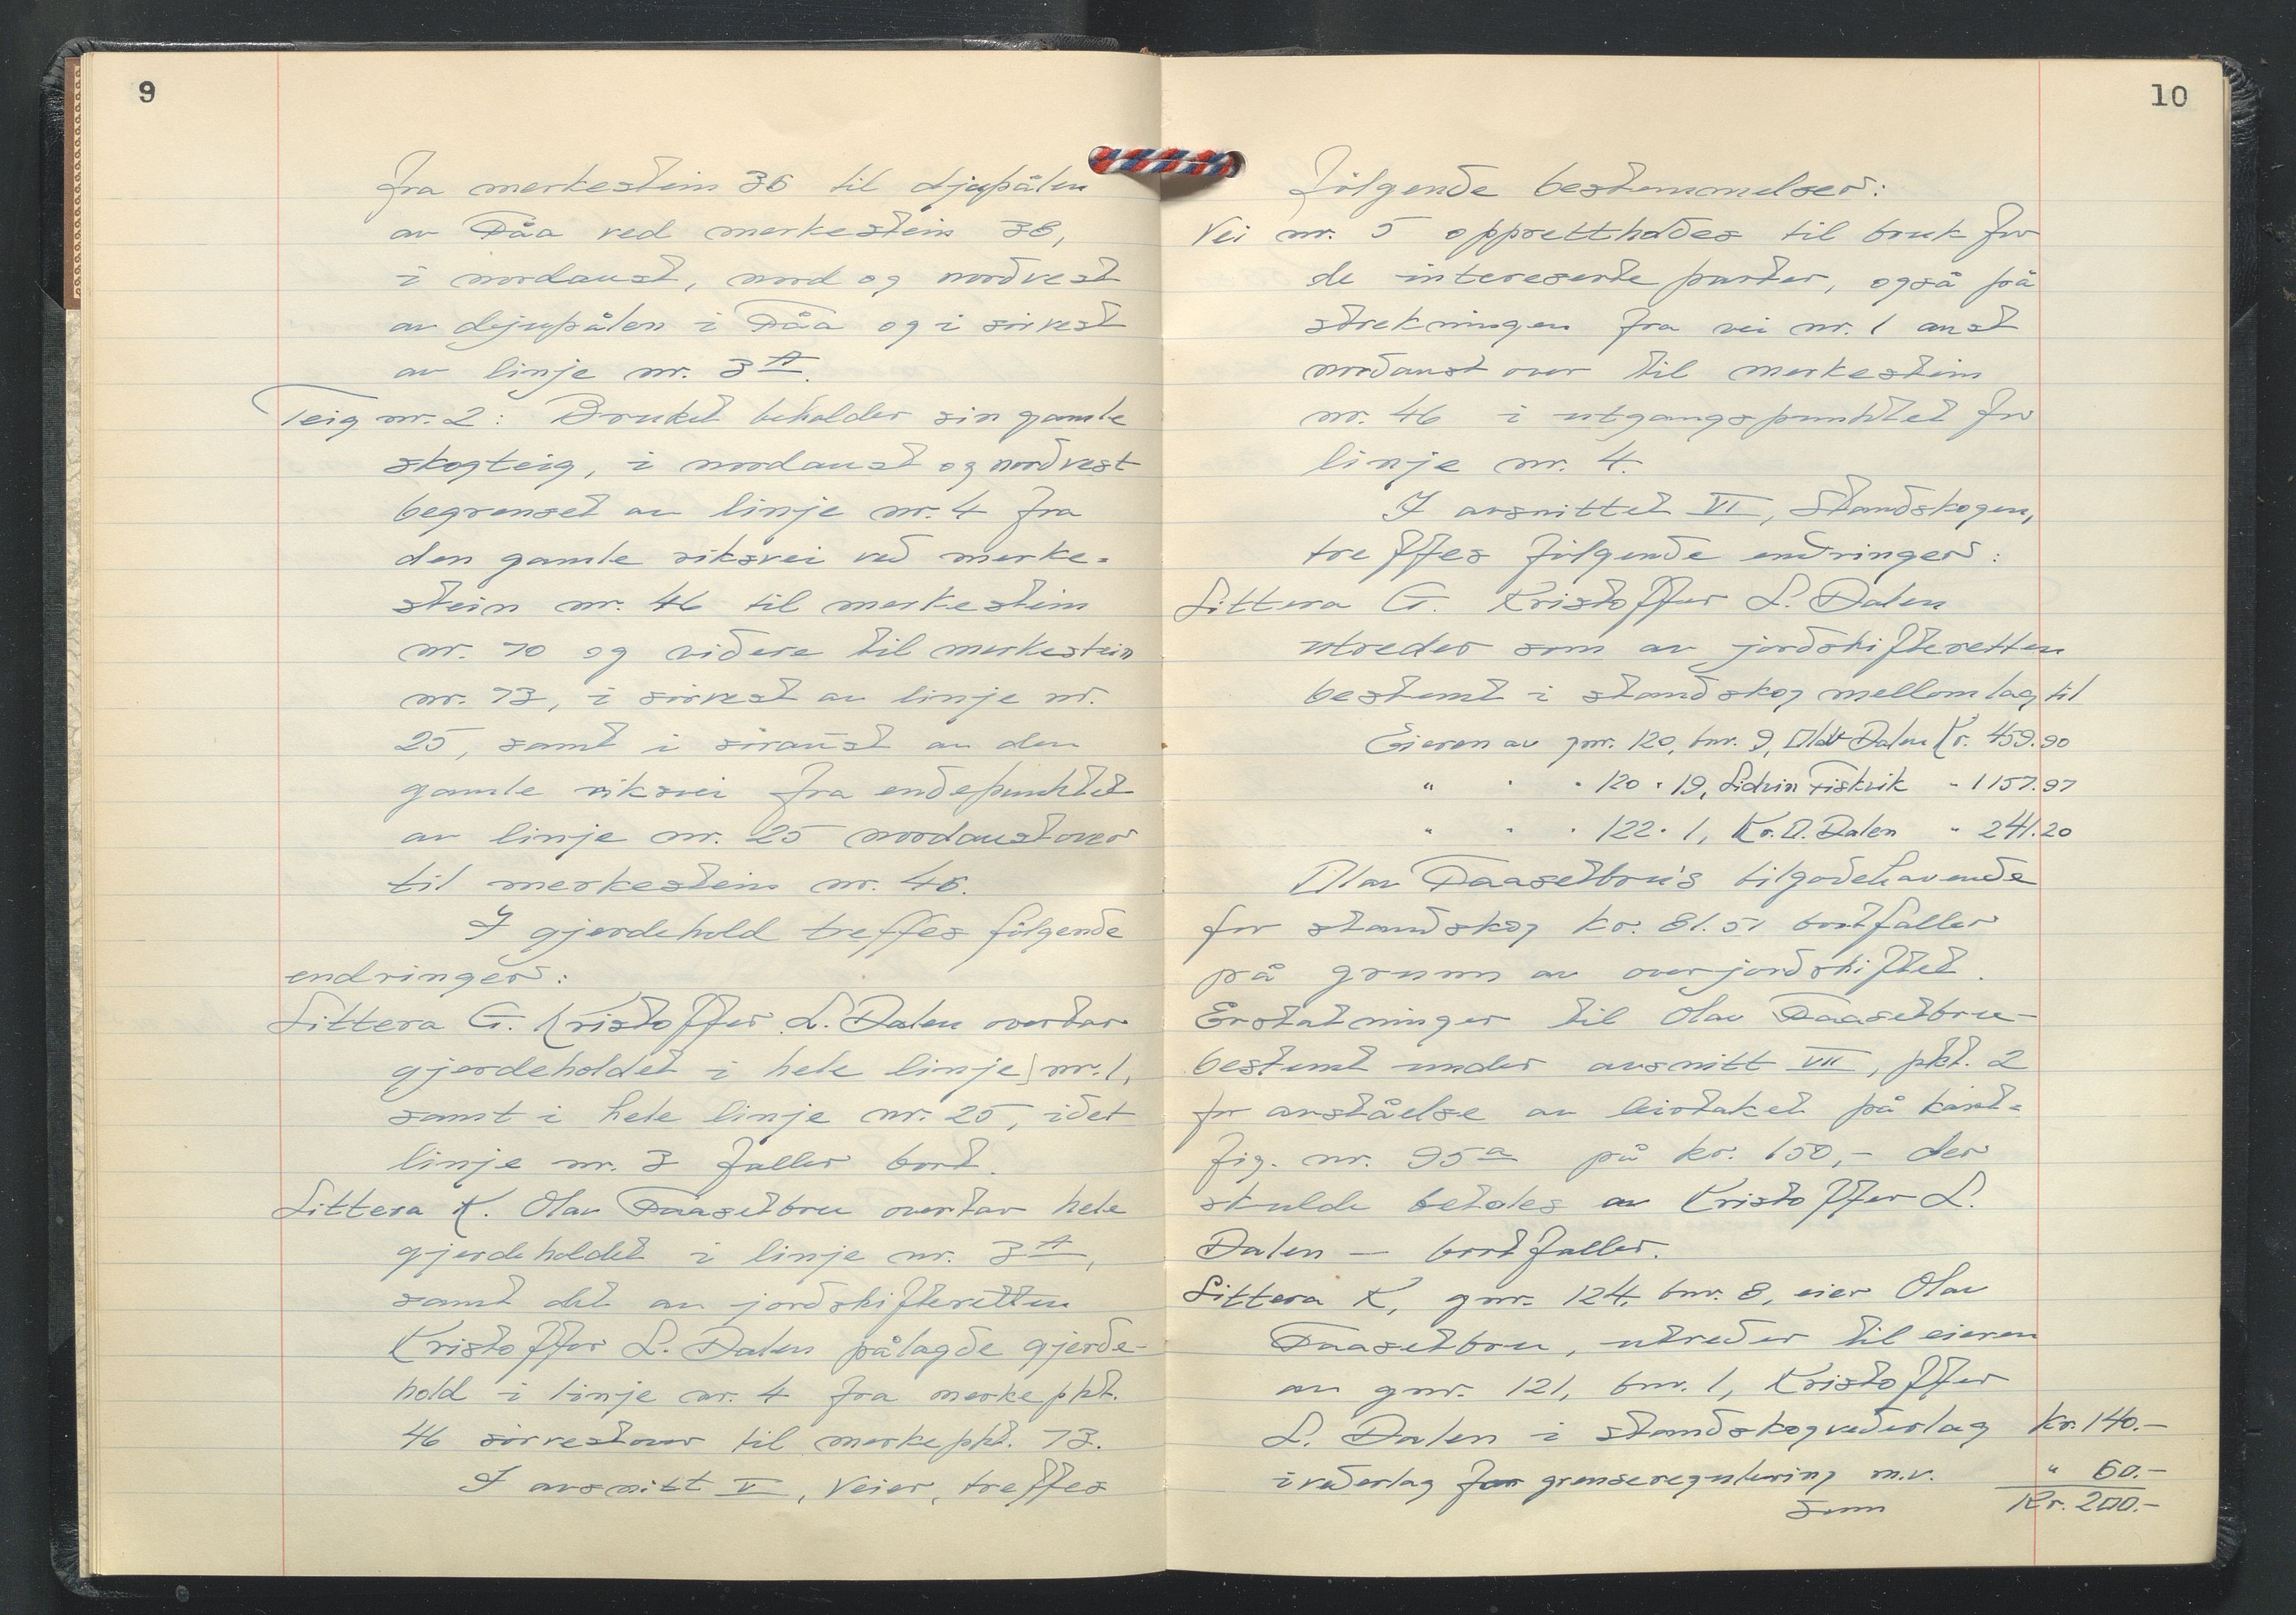 9
fra merkestein 36 til djupålen
av Fåa ved merkestein 38,
i nordaust, nord og nordvest
av djupålen i Fåa og i sørvest
av linje nr. 3ᴬ.
Teig nr. 2: Bruket beholder sin gamle
skogteig, i nordaust og nordvest
begrenset av linje nr. 4 fra
den gamle riksvei ved merke=
stein nr. 46 til merkestein
nr. 70 og videre til merkestein
nr. 73, i sørvest av linje nr.
25, samt i søraust av den
gamle riksvei fra endepunktet
av linje nr. 25 nordaustover
til merkestein nr. 46.
I gjerdehold treffes følgende
endringer:
Littera G. Kristoffer L. Dalen overtar
gjerdeholdet i hele linje nr. 1,
samt i hele linje nr. 25, idet
linje nr. 3 faller bort.
Littera K. Olav Faasetbru overtar hele
gjerdeholdet i linje nr. 3ᴬ,
samt det av jordskifteretten
Kristoffer L. Dalen pålagde gjerde-
hold i linje nr. 4 fra merkepkt.
46 sørvestover til merkepkt. 73.
I avsnitt V, Veier, treffes
10
følgende bestemmelser:
Vei nr. 5 opprettholdes til bruk for
de intereserte parter, også på
strekningen fra vei nr. 1 aust
nordaustover til merkestein
nr. 46 i utgangspunktet for
linje nr. 4.
I avsnittet VI, Standskogen,
treffes følgende endringer:
Littera G. Kristoffer L. Dalen
utreder som av jordskifteretten
bestemt i standskog mellomlag til
Eieren av gnr. 120, bnr. 9, Olav Dalen Kr. 459.90
" " " 120 " 19, Fiskvik " 1157.97
" " " 122 " 1, Kr. O. Dalen " 241.20
Olav Faasetbru's tilgodehavende
for standskog kr. 81.51 bortfaller
på grunn av overjordskiftet.
Erstatninger til Olav Faasetbru -
bestemt under avsnitt VII, pkt. 2
for avståelse av leirtaket på kart=
fig. nr. 95ª på kr. 150,- der
skulde betales av Kristoffer L.
Dalen — bortfaller.
Littera K, gnr. 124, bnr. 8, eier Olav
Faasetbru, utreder til eieren
av gnr. 121, bnr. 1, Kristoffer
L. Dalen i standskogvederlag Kr. 140.-
i vederlag for grenseregulering m.v. " 60.-
Sum Kr. 200.-